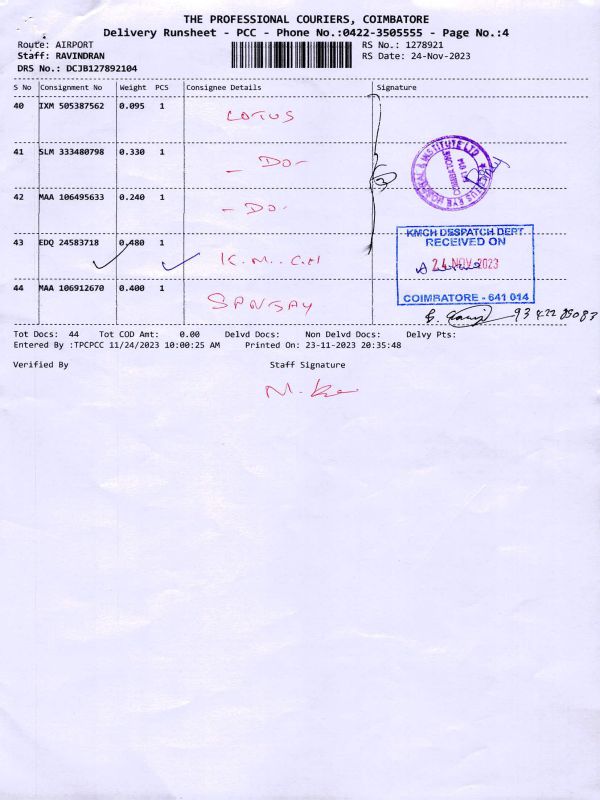 THE PROFESSIONAL COURIERS, COIMBATORE
Delivery Runsheet - PCC - Phone No.:0422-3505555 - Page No.:4
Route: AIRPORT RS No.: 1278921
Staff: RAVINDRAN RS Date: 24-Nov-2023
DRS No.: DCJB127892104
S No Consignment No Weight PCS Consignee Details Signature
40 IXM 505387562 0.095 1 LOTUS
41 SLM 333480798 0.330 1 - DO -
42 MAA 106495633 0.240 1 - DO -
43 EDQ 24583718 0.480 1 K.M.C.H
44 MAA 106912670 0.400 1
LOTUS EYE HOSPITAL & INSTITUTE LTD
COIMBATORE
641 014
KMCH DESPATCH DEPT
RECEIVED ON
24 NOV 2023
COIMBATORE - 641 014
Tot Docs: 44 Tot COD Amt: 0.00 Delvd Docs: Non Delvd Docs: Delvy Pts:
Entered By :TPCPCC 11/24/2023 10:00:25 AM Printed On: 23-11-2023 20:35:48
Verified By Staff Signature